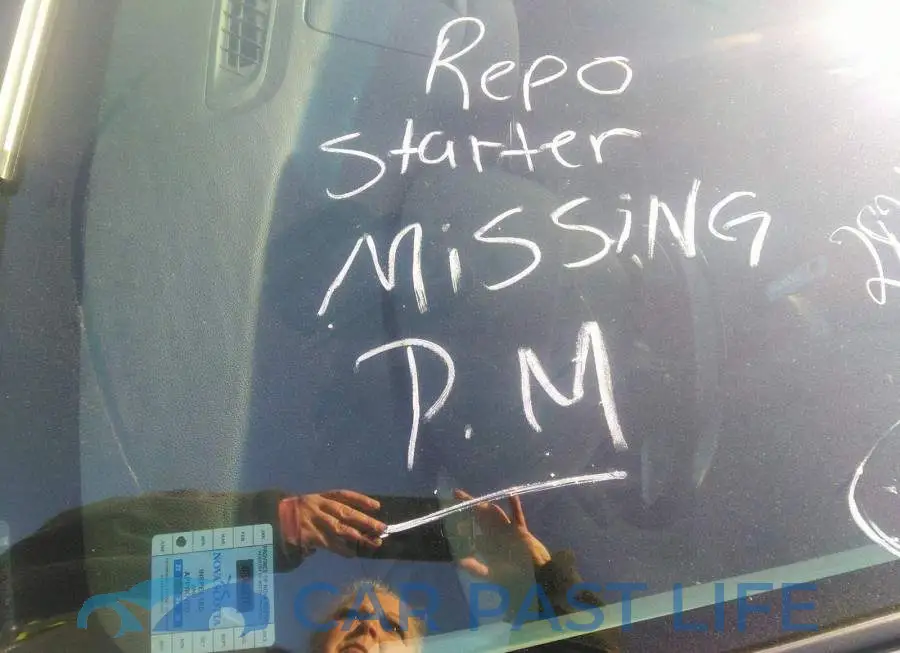 Repo
starter
MISSING
P.M
NOVA SCOTIA
INSPECTED
CAR PAST LIFE